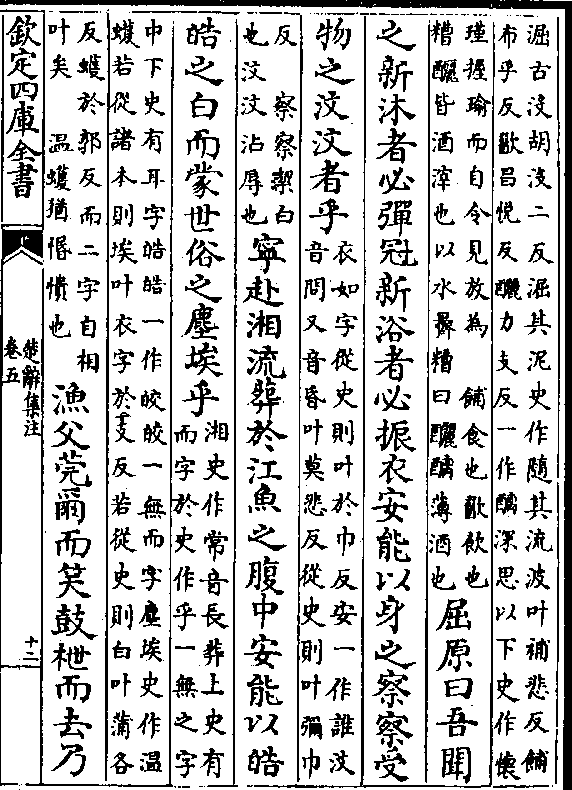 淈古沒胡沒二反淈其泥史作隨其流波叶補悲反餔
布乎反歠昌悅反釃力支反一作醨深思以下史作懷
瑾握瑜而自令見放為　餔食也歠飲也
糟釃皆酒滓也以水𪎊糟曰釃醨薄酒也
屈原曰吾聞
之新沐者必彈冠新浴者必振衣安能以身之察察受
物之汶汶者乎
衣如字從史則叶於巾反安一作誰汶
音問又音昏叶莫悲反從史則叶彌巾
反　察察潔白
也汶汶沾辱也
寧赴湘流葬於江魚之腹中安能以皓
皓之白而蒙世俗之塵埃乎
湘史作常音長葬上史有
而字於史作乎一無之字
中下史有耳字皓皓一作皎皎一無而字塵埃史作温
蠖若從諸本則埃叶衣字於支反若從史則白叶蒲各
反蠖於郭反而二字自相
叶矣　温蠖猶惛憒也
漁父莞爾而笑鼓枻而去乃
欽定四庫全書
楚辭集注
卷五
十二